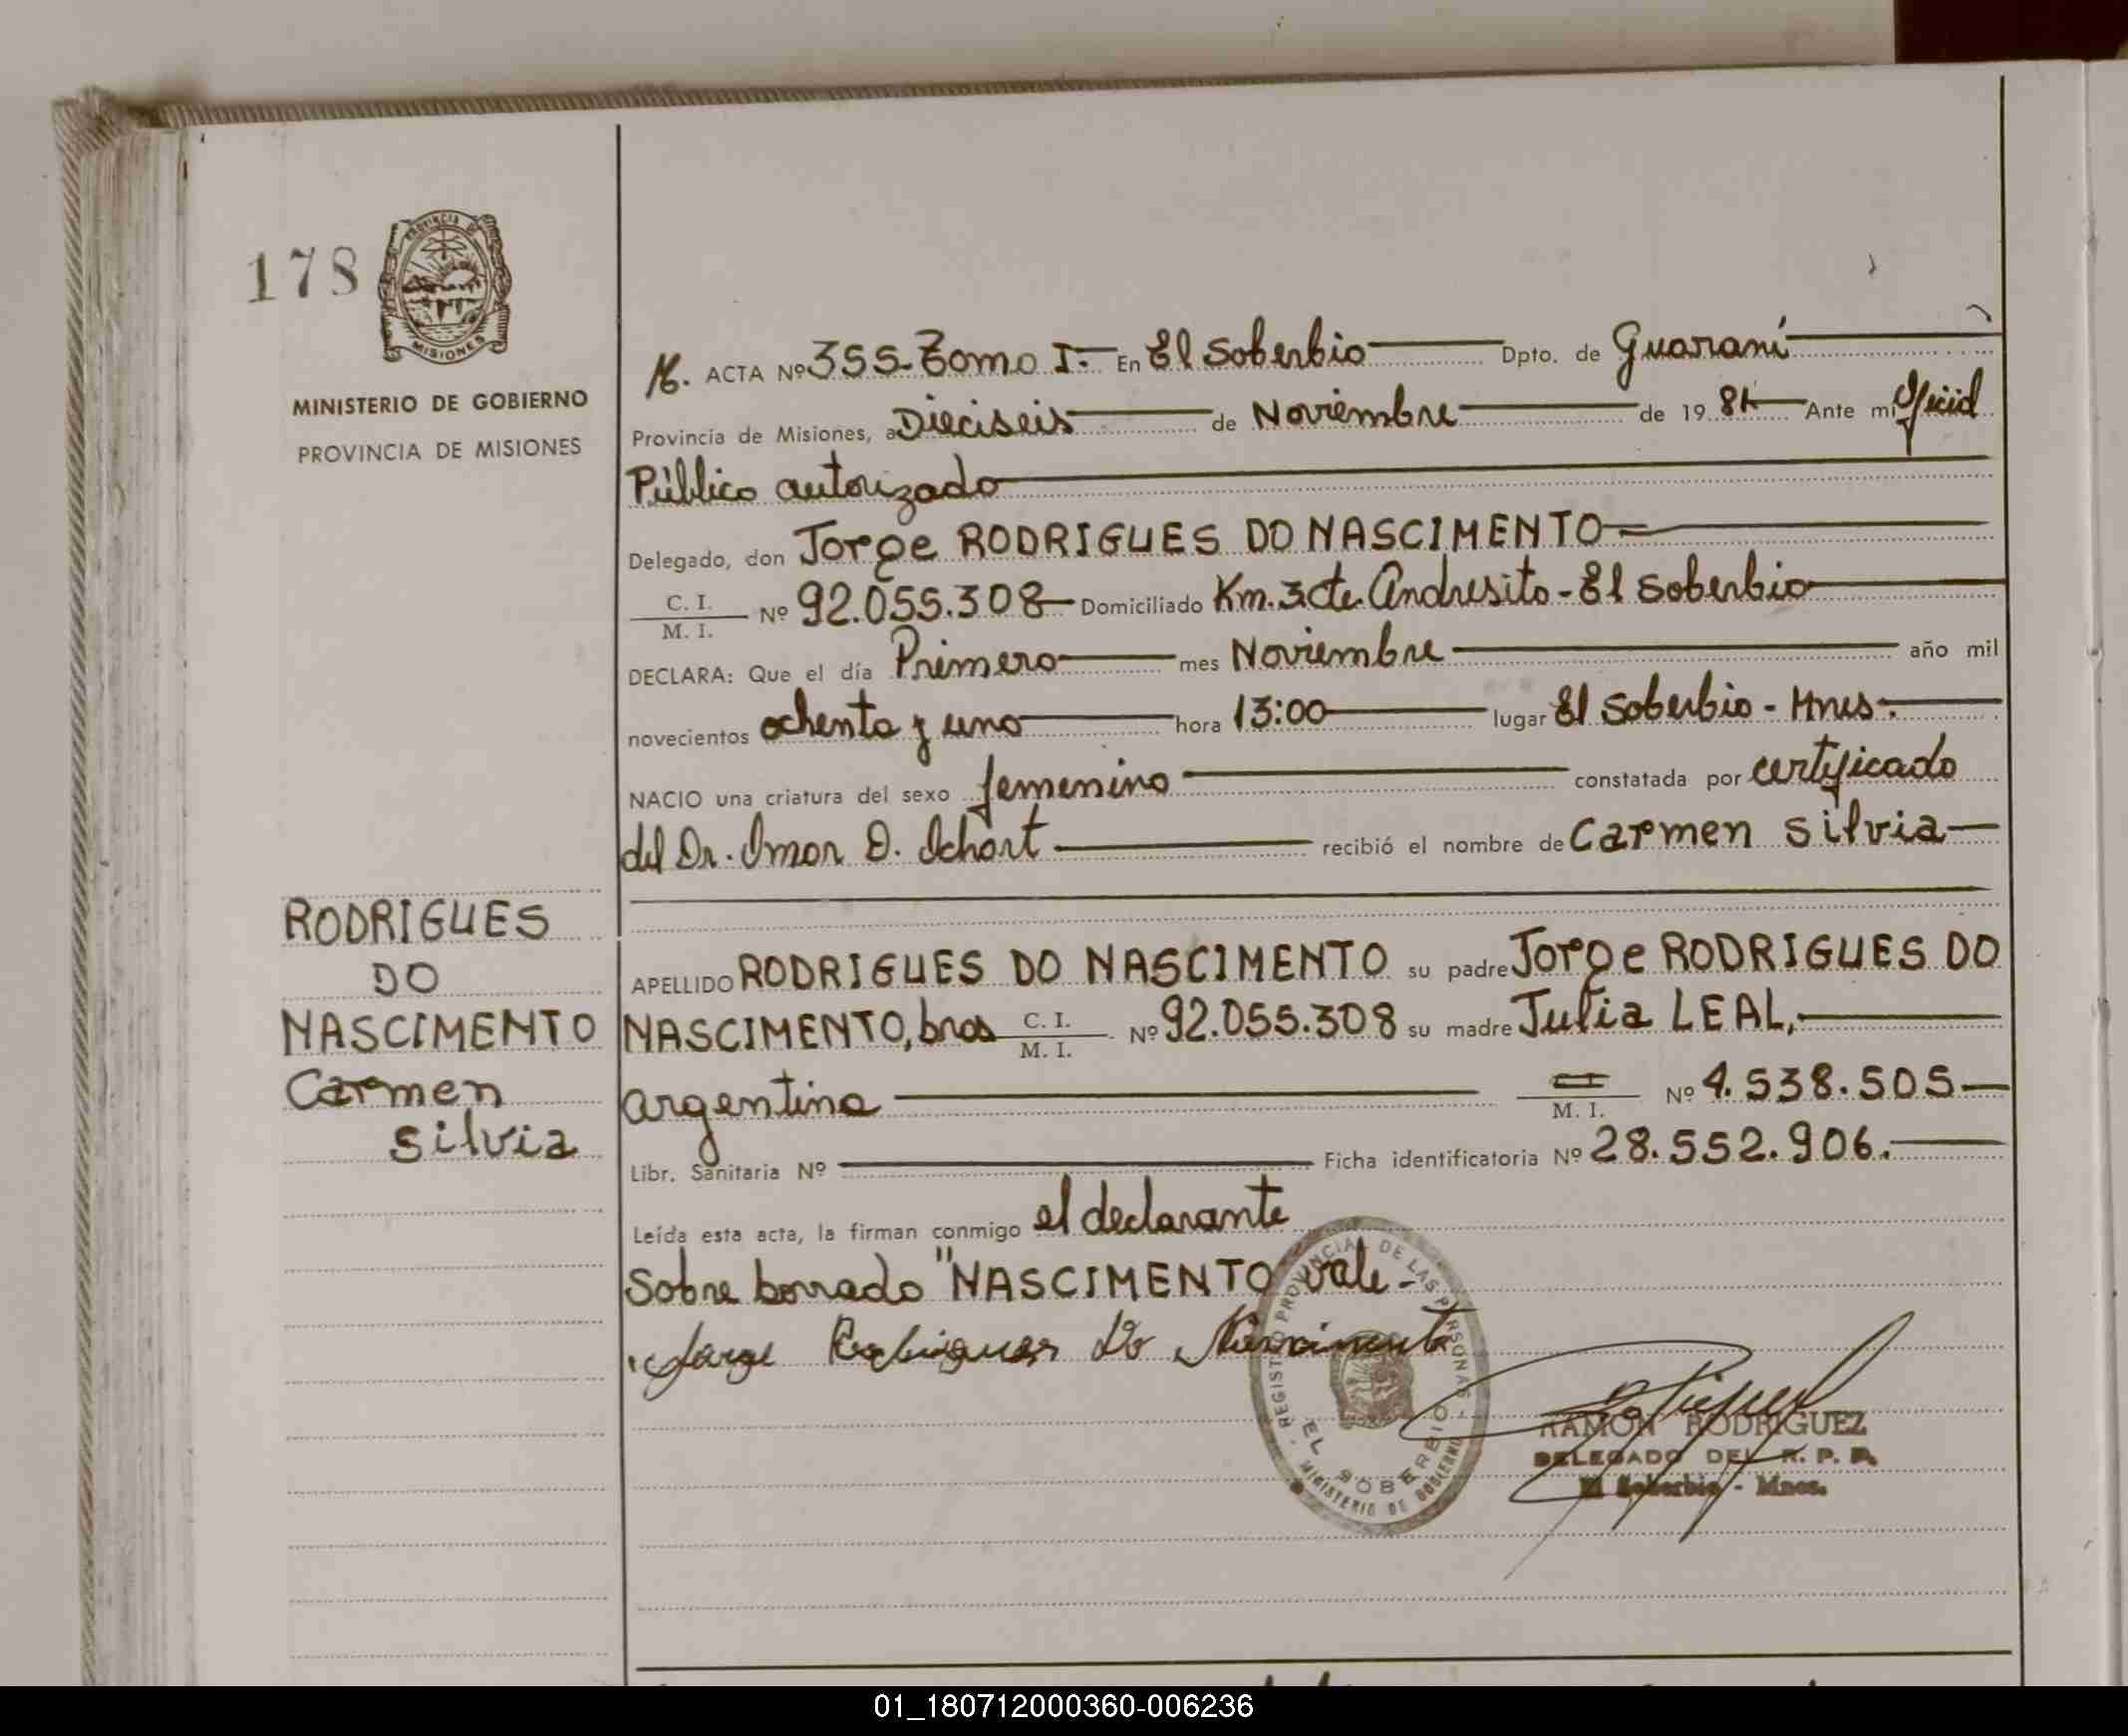 178
PROVINCIA DE
MISIONES
MINISTERIO DE GOBIERNO
PROVINCIA DE MISIONES
RODRIGUES
DO
NASCIMENTO
Carmen
Silvia
ACTA Nº 355. Tomo I.- En El Soberbio Dpto. de Guaraní
Provincia de Misiones, a Dieciseis de Noviembre de 19 81 Ante mi Oficial
Público autorizado
Delegado, don Jorge RODRIGUES DO NASCIMENTO
C. I.
M. I. Nº 92.055.308 Domiciliado Km. 3 cte. Andresito - El Soberbio
DECLARA: Que el día Primero mes Noviembre año mil
novecientos ochenta y uno hora 13:00 lugar El Soberbio - Mnes.
NACIO una criatura del sexo femenino constatada por certificado
del Dr. Omar O. recibió el nombre de Carmen Silvia
APELLIDO RODRIGUES DO NASCIMENTO su padre Jorge RODRIGUES DO
NASCIMENTO, bras C. I. M. I. Nº 92.055.308 su madre Julia LEAL,
argentina M. I. Nº 4.538.505
Libr. Sanitaria Nº Ficha identificatoria Nº 28.552.906.
Leída esta acta, la firman conmigo el declarante
Sobre borrado "NASCIMENTO vale -
Jorge Rodrigues Do Nascimento
REGISTRO PROVINCIAL DE LAS PERSONAS
EL SOBERBIO
MINISTERIO DE GOBIERNO
RAMON RODRIGUEZ
DELEGADO DEL R. P. P.
El Soberbio - Mnes.
01_180712000360-006236